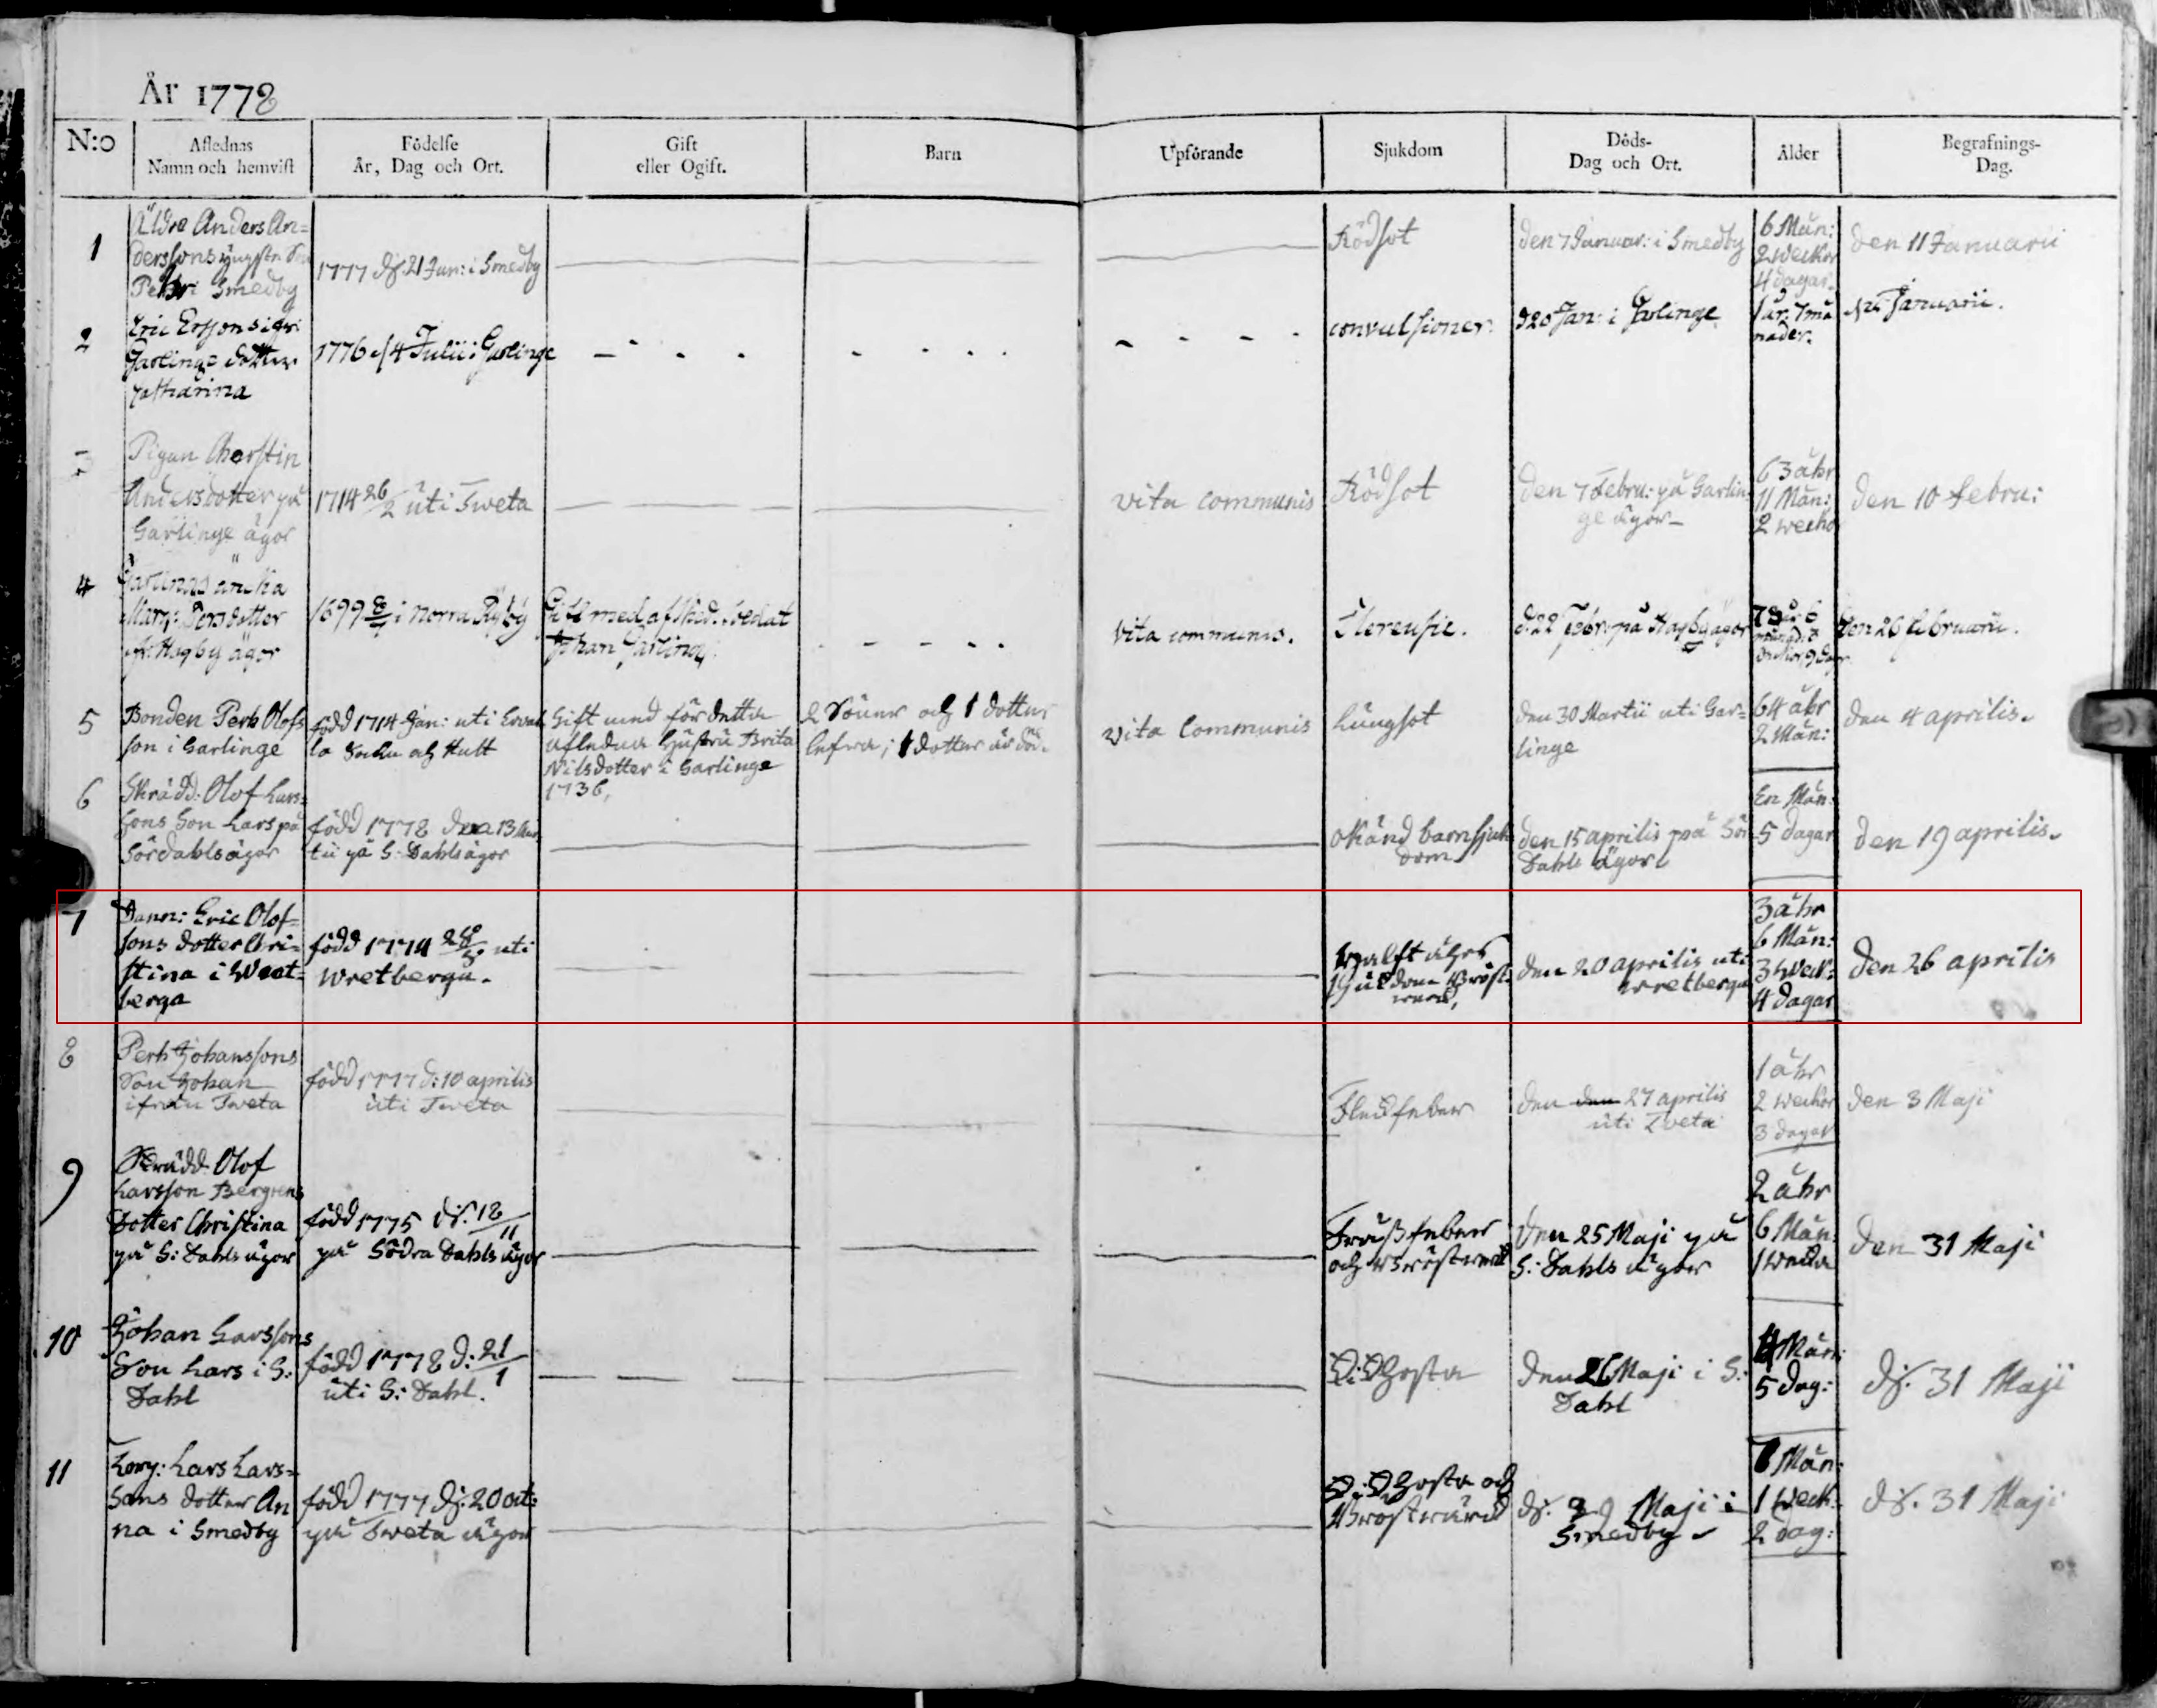 År 1778
N:o
Aflednas
Namn och hemvist
Födelse
År, Dag och Ort.
Gift
eller Ogift.
Barn
Upförande
Sjukdom
Döds-
Dag och Ort.
Ålder
Begrafnings-
Dag.
1
Äldre Anders An=
derssons yngste Son
i Smedby
1777 d. 21 Jun: i Smedby
Rödsot
den 7 Januar: i Smedby
6 Mån:
2 weckor
4 dagar.
den 11 Januarii
2
Eric Ersons i
Garlinge dotter
Catharina
1776 d 4 Julii i Garlinge
convulsioner.
d 20 Jan: i Garlinge
1 år. 7 må
nader.
Januarii.
Pigan Cherstin
Andersdotter på
Garlinge ägor
1714 26/2 uti Tweta
vita communis
Rödsot
den 7 Febru: på Garlin=
ge ägor
63 åhr
11 Mån:
2 weckor
den 10 Febru:
4
änka
Persdotter
Hagby ägor
1699 i Norra
Gift med afsked. soldat
Johan
vita communis.
Pleuresie.
d. 22 Febr: på Hagby ägor
den 26 februarii.
5
Bonden Pehr Olofs
son i Garlinge
född 1714 Jan: uti
la Sochn och Hult
Gift med för detta
afledna hustru Brita
Nilsdotter i Garlinge
1736,
2 Söner och 1 dotter
lefva; 1 dotter är död.
vita Communis
Lungsot
den 30 Martii uti Gar=
linge
64 åhr
2 Mån:
den 4 aprilis.
6
Skrädd: Olof Lars=
sons Son Lars på
Sördahls ägor
född 1778 den 13 Mar
tii på S: Dahls ägor
okänd barnsjuk
dom
den 15 aprilis på Sör
Dahls ägor
En Mån:
5 dagar
den 19 aprilis.
7
Dann: Eric Olof=
sons dotter Chri=
stina i Wret=
berga
född 1774 uti
Wretberga.
Bröst
den 20 aprilis uti
Wretberga
3 åhr
6 Mån:
3 Weck:
4 dagar
den 26 aprilis
8
Pehr Johanssons
Son Johan
ifrån Tweta
född 1777 d: 10 aprilis
uti Tweta
Fleckfeber
den den 27 aprilis
uti Tweta
1 åhr
2 weckor
3 dagar
den 3 Maji
9
Skrädd: Olof
Larsson Bergrens
Dotter Christina
på S: Dahls ägor
född 1775 d. 18/11
på Södra Dahls ägor
feber
och Bröstwerk
den 25 Maji på
S: Dahls ägor
2 åhr
6 Mån:
1 wecka
den 31 Maji
10
Johan Larssons
Son Lars i S:
Dahl
född 1778 d: 21/1
uti S: Dahl.
hosta
den 26 Maji i S:
Dahl
4 Mån:
5 dag:
d. 31 Maji
11
Lars Lars=
Sons dotter An
na i Smedby
född 1777 d. 20 oct:
på Tweta ägor
hosta och
Bröstwärck
d. 29 Maji i
Smedby
Mån:
1 Weck:
2 dag:
d. 31 Maji